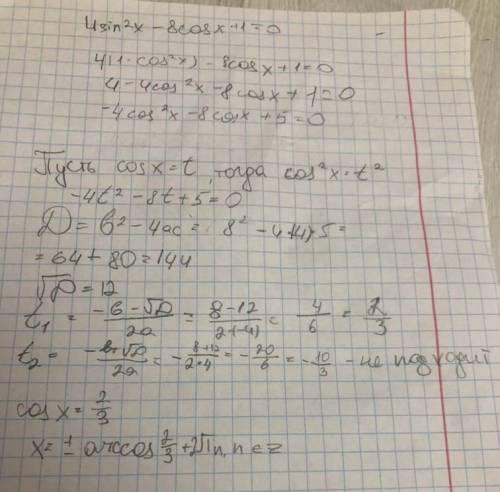 4sin²x − 8cosx + 1 = 0
4(1 - cos²x) - 8cosx + 1 = 0
4 - 4cos²x - 8cosx + 1 = 0
-4cos²x - 8cosx + 5 = 0
Пусть cosx = t, тогда cos²x = t²
-4t² - 8t + 5 = 0
D = b² - 4ac = 8² - 4·(-4)·5 =
= 64 + 80 = 144
√D = 12
t₁ = (-b - √D)/2a = (8 - 12)/(2·(-4)) = 4/6 = 2/3
t₂ = (-b + √D)/2a = -(8 + 12)/(2·4) = -20/6 = -10/3 - не подходит
cosx = 2/3
x = ± arccos 2/3 + 2πn, n ∈ z